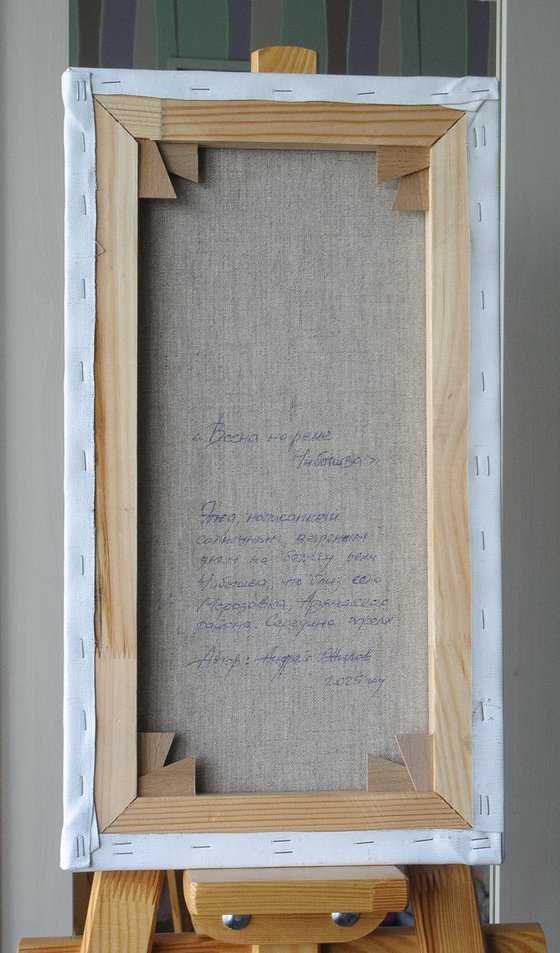 «Весна на реке
Чибошва»
Этюд, написанный
солнечным, ветреным
днем на берегу реки
что близ села
Морозовка,
района. Середина апреля
Автор: Андрей Жилов
2025 год